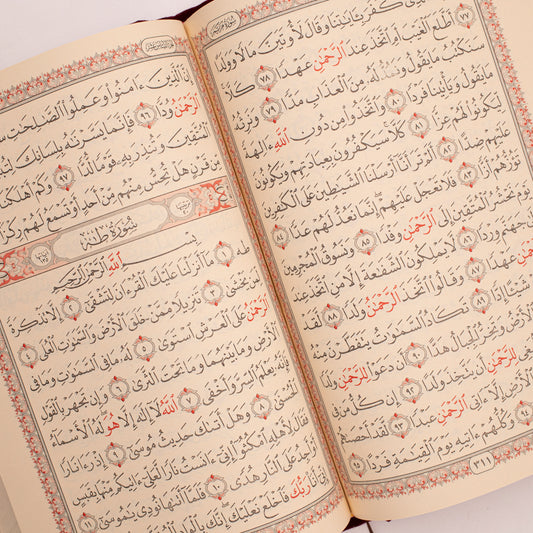 سُورَةُ مَرْيَمَ
كَفَرَ بِـَٔايَٰتِنَا وَقَالَ لَأُوتَيَنَّ مَالًا وَوَلَدًا ٧٧
أَطَّلَعَ ٱلْغَيْبَ أَمِ ٱتَّخَذَ عِندَ ٱلرَّحْمَٰنِ عَهْدًا ٧٨ كَلَّا
سَنَكْتُبُ مَا يَقُولُ وَنَمُدُّ لَهُۥ مِنَ ٱلْعَذَابِ مَدًّا ٧٩ وَنَرِثُهُۥ
مَا يَقُولُ وَيَأْتِينَا فَرْدًا ٨٠ وَٱتَّخَذُوا۟ مِن دُونِ ٱللَّهِ ءَالِهَةً
لِّيَكُونُوا۟ لَهُمْ عِزًّا ٨١ كَلَّا سَيَكْفُرُونَ بِعِبَادَتِهِمْ وَيَكُونُونَ
عَلَيْهِمْ ضِدًّا ٨٢ أَلَمْ تَرَ أَنَّآ أَرْسَلْنَا ٱلشَّيَٰطِينَ عَلَى ٱلْكَٰفِرِينَ
تَؤُزُّهُمْ أَزًّا ٨٣ فَلَا تَعْجَلْ عَلَيْهِمْ إِنَّمَا نَعُدُّ لَهُمْ عَدًّا ٨٤
يَوْمَ نَحْشُرُ ٱلْمُتَّقِينَ إِلَى ٱلرَّحْمَٰنِ وَفْدًا ٨٥ وَنَسُوقُ ٱلْمُجْرِمِينَ
جَهَنَّمَ وِرْدًا ٨٦ لَّا يَمْلِكُونَ ٱلشَّفَٰعَةَ إِلَّا مَنِ ٱتَّخَذَ عِندَ
عَهْدًا ٨٧ وَقَالُوا۟ ٱتَّخَذَ ٱلرَّحْمَٰنُ وَلَدًا ٨٨ لَّقَدْ
شَيْـًٔا إِدًّا ٨٩ تَكَادُ ٱلسَّمَٰوَٰتُ يَتَفَطَّرْنَ مِنْهُ
ٱلْأَرْضُ وَتَخِرُّ ٱلْجِبَالُ هَدًّا ٩٠ أَن دَعَوْا۟ لِلرَّحْمَٰنِ وَلَدًا
لِلرَّحْمَٰنِ أَن يَتَّخِذَ وَلَدًا ٩٢ إِن كُلُّ مَن فِى
وَٱلْأَرْضِ إِلَّآ ءَاتِى ٱلرَّحْمَٰنِ عَبْدًا ٩٣ لَّقَدْ أَحْصَىٰهُمْ
٩٤ وَكُلُّهُمْ ءَاتِيهِ يَوْمَ ٱلْقِيَٰمَةِ فَرْدًا ٩٥
٣١١
إِنَّ ٱلَّذِينَ ءَامَنُوا۟ وَعَمِلُوا۟ ٱلصَّٰلِحَٰتِ
ٱلرَّحْمَٰنُ وُدًّا ٩٦ فَإِنَّمَا يَسَّرْنَٰهُ بِلِسَانِكَ لِتُبَشِّرَ
ٱلْمُتَّقِينَ وَتُنذِرَ بِهِۦ قَوْمًا لُّدًّا ٩٧ وَكَمْ أَهْلَكْنَا
مِّن قَرْنٍ هَلْ تُحِسُّ مِنْهُم مِّنْ أَحَدٍ أَوْ تَسْمَعُ لَهُمْ رِكْزًا
سُورَةُ طه
بِسْمِ ٱللَّهِ ٱلرَّحْمَٰنِ ٱلرَّحِيمِ
طه ١ مَآ أَنزَلْنَا عَلَيْكَ ٱلْقُرْءَانَ لِتَشْقَىٰٓ ٢ إِلَّا تَذْكِرَةً
لِّمَن يَخْشَىٰ ٣ تَنزِيلًا مِّمَّنْ خَلَقَ ٱلْأَرْضَ وَٱلسَّمَٰوَٰتِ ٱلْعُلَى ٤
ٱلرَّحْمَٰنُ عَلَى ٱلْعَرْشِ ٱسْتَوَىٰ ٥ لَهُۥ مَا فِى ٱلسَّمَٰوَٰتِ وَمَا فِى
ٱلْأَرْضِ وَمَا بَيْنَهُمَا وَمَا تَحْتَ ٱلثَّرَىٰ ٦ وَإِن تَجْهَرْ بِٱلْقَوْلِ
فَإِنَّهُۥ يَعْلَمُ ٱلسِّرَّ وَأَخْفَى ٧ ٱللَّهُ لَآ إِلَٰهَ إِلَّا هُوَ لَهُ ٱلْأَسْمَآءُ
ٱلْحُسْنَىٰ ٨ وَهَلْ أَتَىٰكَ حَدِيثُ مُوسَىٰٓ ٩ إِذْ رَءَا نَارًا
فَقَالَ لِأَهْلِهِ ٱمْكُثُوٓا۟ إِنِّىٓ ءَانَسْتُ نَارًا لَّعَلِّىٓ ءَاتِيكُم مِّنْهَا بِقَبَسٍ
أَوْ أَجِدُ عَلَى ٱلنَّارِ هُدًى ١٠ فَلَمَّآ أَتَىٰهَا نُودِىَ يَٰمُوسَىٰٓ ١١
إِنِّىٓ أَنَا۠ رَبُّكَ فَٱخْلَعْ نَعْلَيْكَ إِنَّكَ بِٱلْوَادِ ٱلْمُقَدَّسِ